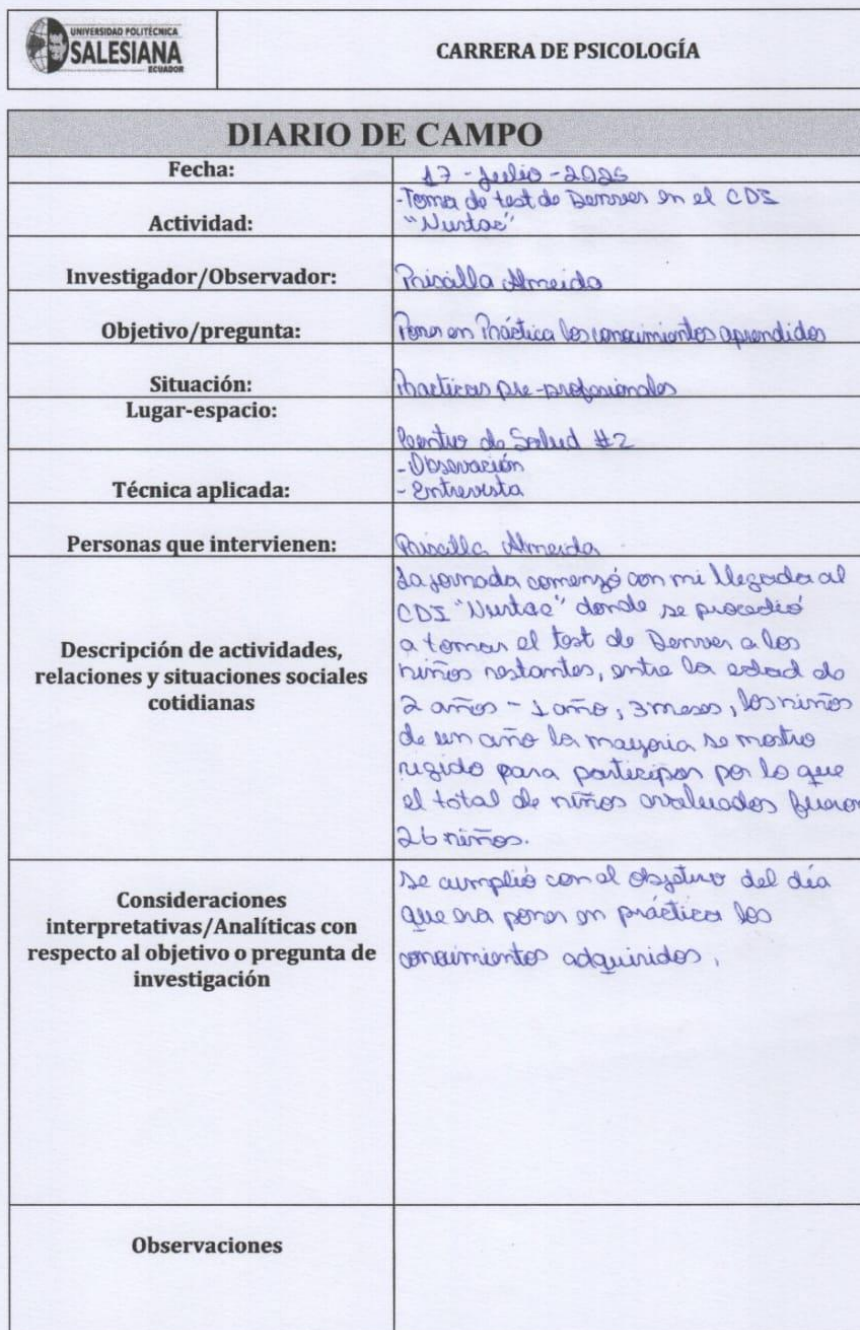 UNIVERSIDAD POLITÉCNICA
SALESIANA
ECUADOR
CARRERA DE PSICOLOGÍA
DIARIO DE CAMPO
Fecha:
17 - Julio - 2025
Actividad:
-Toma de test de Denver en el CDI
"Nurtac"
Investigador/Observador:
Priscilla Almeida
Objetivo/pregunta:
Poner en Práctica los conocimientos aprendidos
Situación:
Practicas pre-profesionales
Lugar-espacio:
Centro de Salud #2
Técnica aplicada:
- Observación
- Entrevista
Personas que intervienen:
Priscilla Almeida
Descripción de actividades,
relaciones y situaciones sociales
cotidianas
La jornada comenzó con mi llegada al
CDI "Nurtac" donde se procedió
a tomar el test de Denver a los
niños restantes, entre la edad de
2 años - 1 año, 3 meses, los niños
de un año la mayoria se mostro
rigido para participar por lo que
el total de niños evaluados fueron
26 niños.
Consideraciones
interpretativas/Analíticas con
respecto al objetivo o pregunta de
investigación
se cumplió con el objetivo del día
que era poner en práctica los
conocimientos adquiridos,
Observaciones